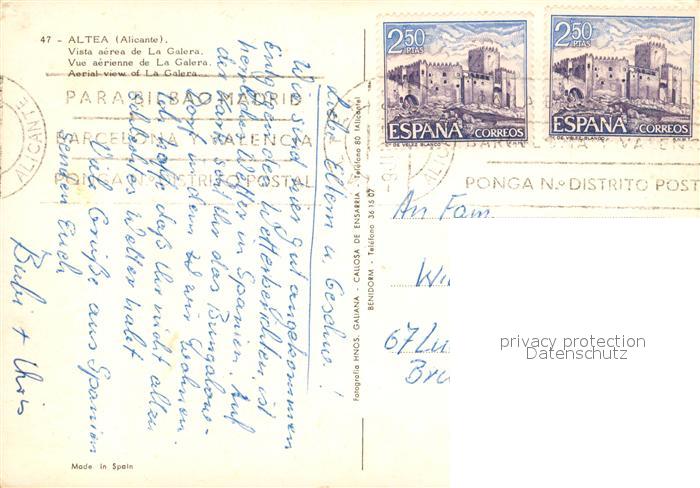 47 - ALTEA (Alicante).
Vista aérea de La Galera.
Vue aérienne de La Galera.
Aerial view of La Galera.
PARA BILBAO MADRID
BARCELONA Y VALENCIA
PONGA N.º DISTRITO POSTAL
ALICANTE
Liebe Eltern u. Geschw!
Wir sind hier gut angekommen
Entgegen den Wetterberichten, ist
herrliches Wetter in Spanien. Auf
der Karte seht Ihr das Bungalow-
dorf in dem wir wohnen.
Ich hoffe daß Ihr nicht allzu
schlechtes Wetter habt
Viel Grüße aus Spanien
senden Euch
Bubi + Chris
Made in Spain
Fotografía HNOS. GALIANA - CALLOSA DE ENSARRIA - Teléfono 80 (Alicante)
BENIDORM - Teléfono 36 15 07
2'50 PTAS
ESPAÑA CORREOS
DE VELEZ BLANCO F.N.M.T.
2'50 PTAS
ESPAÑA CORREOS
DE VELEZ BLANCO F.N.M.T.
PONGA N.º DISTRITO POST
An Fam.
Wi
67 Lu
Br
privacy protection
Datenschutz